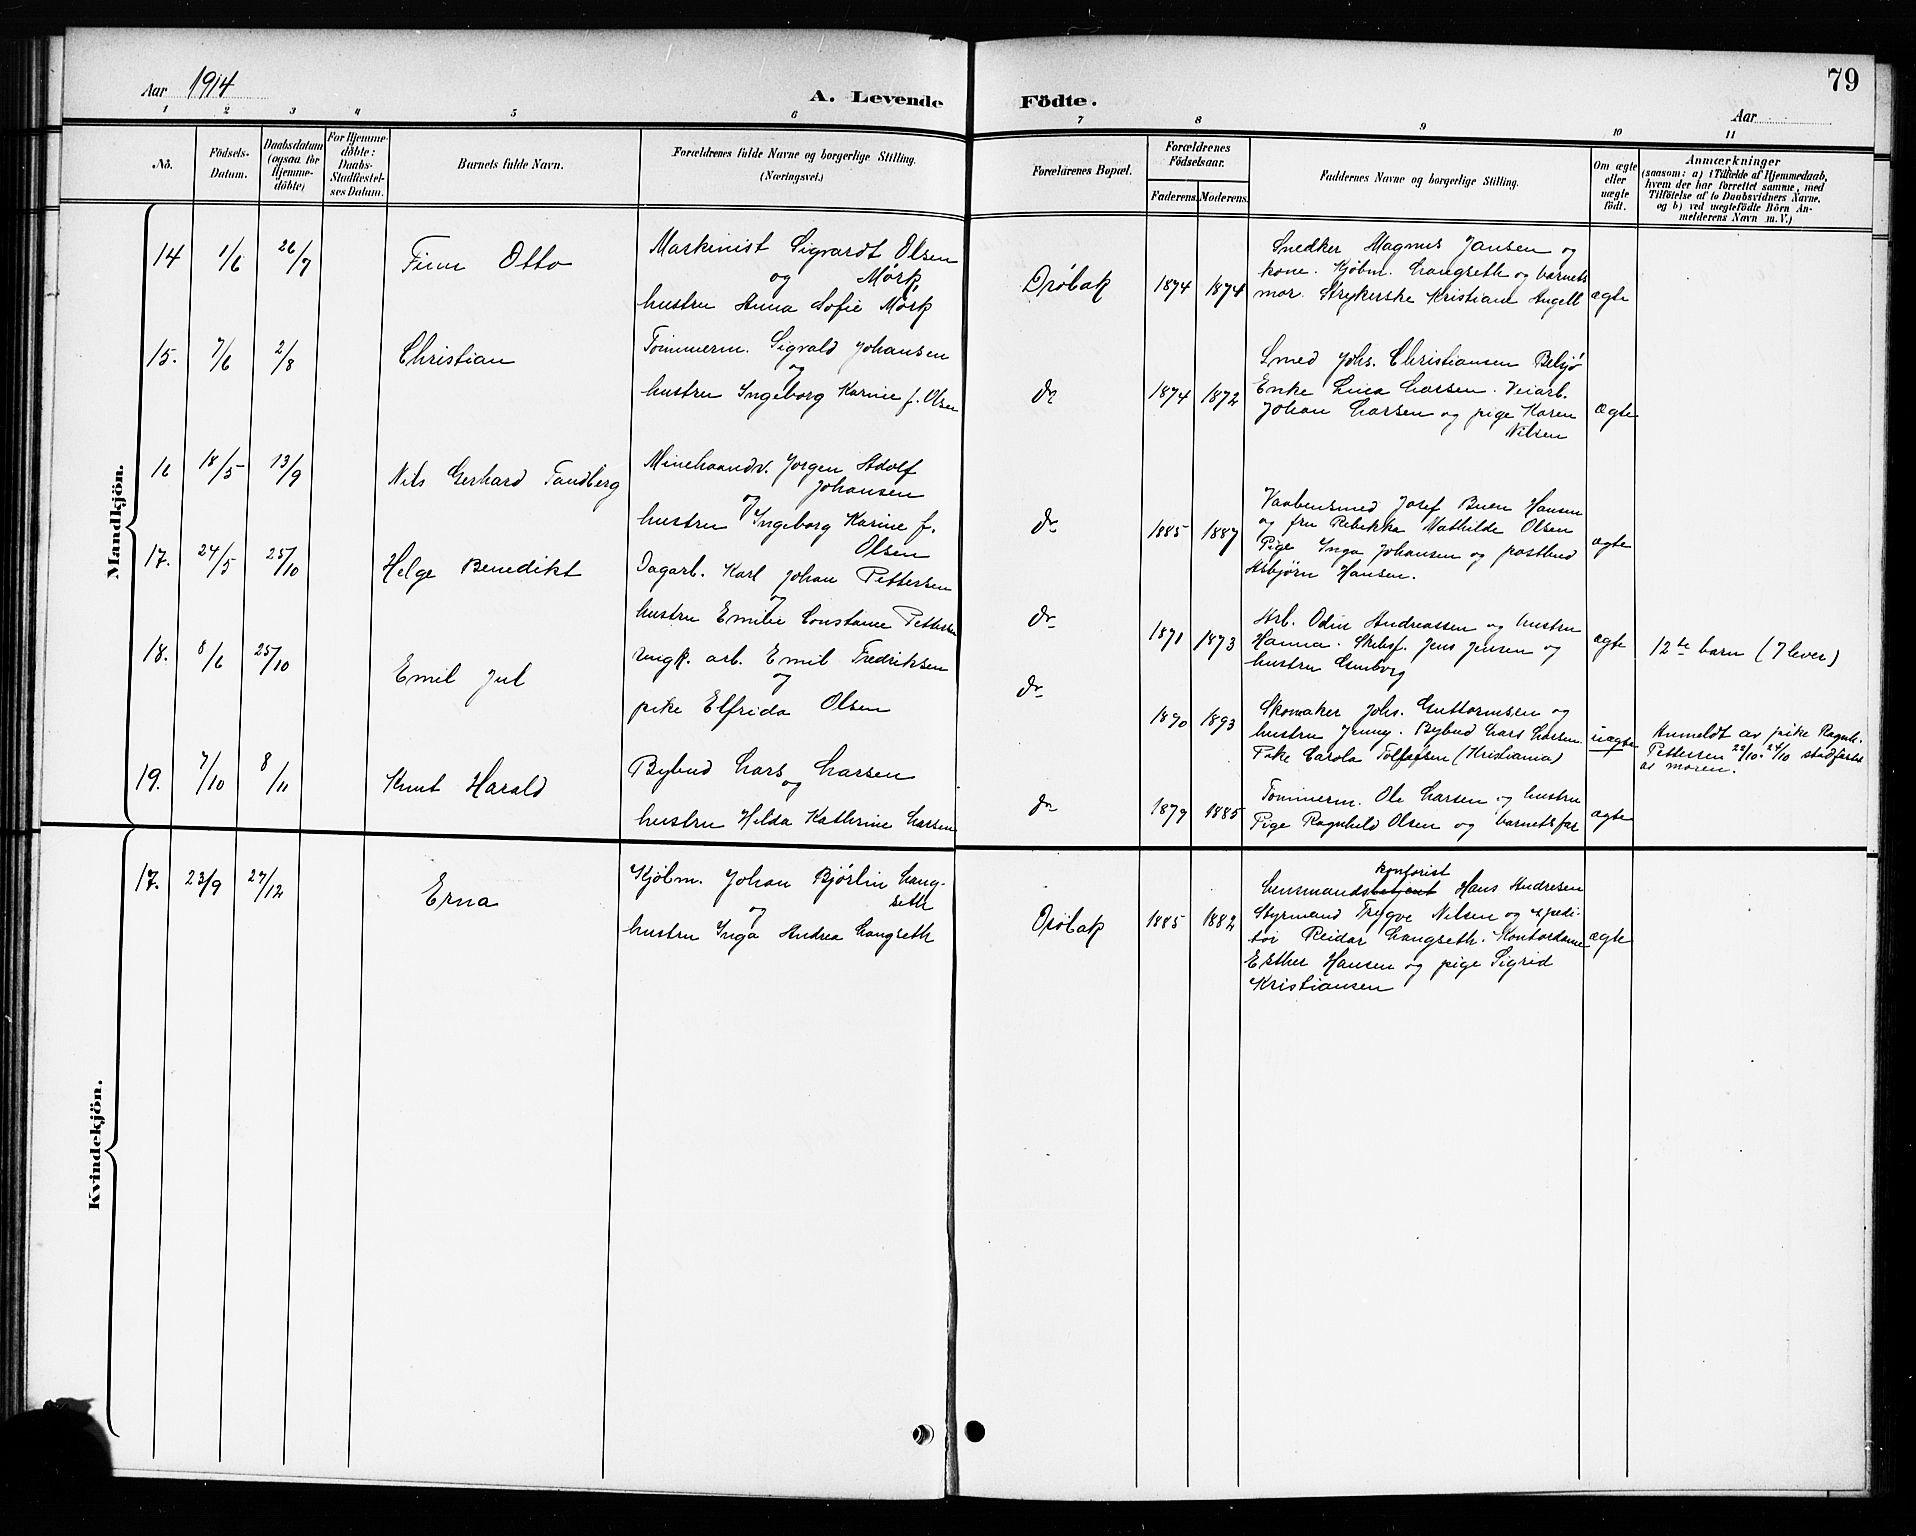 79
Aar 1914
A. Levende Födte.
Aar
1 2 3 4 5 6 7 8 9 10 11
No.
Födsels-
Datum.
Daabsdatum
(ogsaa for
Hjemme-
döbte)
For Hjemme-
döbte:
Daabs-
Stadfæstel-
ses Datum.
Barnets fulde Navn.
Forældrenes fulde Navne og borgerlige Stilling.
(Næringsvei.)
Forældrenes Bopæl.
Forældrenes
Födselsaar.
Faderens. Moderens.
Faddernes Navne og borgerlige Stilling.
Om ægte
eller
uægte
födt.
Anmærkninger
(saasom: a) i Tilfælde af Hjemmedaab,
hvem der har forrettet samme, med
Tilföielse af to Daabsvidners Navne,
og b) ved uægtefödte Börn An-
melderens Navn m. V.)
Mandkjön.
14 1/6 26/7 Finn Otto
Maskinist Sigvardt Olsen
og Mörk,
hustru Anna Sofie Mörk
Dröbak 1874 1874
Snedker Magnus Jansen og
kone. Kjöbm. Langseth og barnets
mor. Strykerske Kristiane Angell
ægte
15. 7/6 2/8 Christian
Tömmerm. Sigvald Johansen
og
hustru Ingeborg Karine f. Olsen
do 1874 1872
Smed Johs. Christiansen Belsjö
Enke Lina Larsen. Veiarb.
Johan Larsen og pige Karen
Nilsen
ægte
16 18/5 13/9 Nils Gerhard Tandberg
Minehaandv. Jörgen Adolf
Johansen
og
hustru Ingeborg Karine f.
Olsen
do 1885 1887
Vaabensmed Josef Buer Hansen
og fru Rebekka Mathilde Olsen
Pige Inga Johansen og postbud
Asbjörn Hansen.
ægte
17. 24/5 25/10 Helge Benedikt
Dagarb. Karl Johan Pettersen
og
hustru Emilie Constance Pettersen
do 1871 1873
Arb. Odin Andreassen og hustru
Hanna. Skibsf. Jens Jensen og
hustru
ægte
12te barn (7 lever)
18. 8/6 25/10 Emil Jul
Ungk. arb. Emil Fredriksen
og
pike Elfrida Olsen
do 1890 1893
Skomaker Johs. Guttormsen og
hustru Jenny. Bybud Lars Larsen
Pike Carola Tollefsen (Kristiania)
uægte
Anmeldt av pike Ragnh.
Pettersen 22/10. 24/10 stadfæstet
av moren.
19. 7/10 8/11 Knut Harald
Bybud Lars Larsen
og
hustru Hilda Kathrine Larsen
do 1879 1885
Tömmerm. Ole Larsen og hustru
Pige Ragnhild Olsen og barnets far
ægte
Kvindekjön.
17. 23/9 27/12 Erna
Kjöbm. Johan Björlin Lang-
seth
og
hustru Inga Andrea Langseth
Dröbak 1885 1882
kontorist
Lensmandsbetjent Hans Andresen
Styrmand Trygve Nilsen og expedi-
tör Reidar Langseth. Kontordame
Esther Hansen og pige Sigrid
Kristiansen
ægte